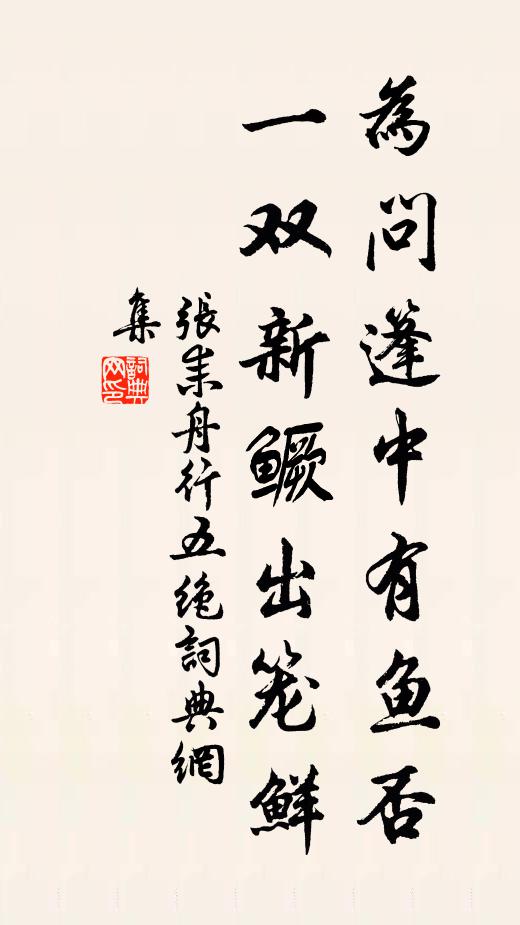 為问篷中有鱼否
一双新鳜出笼鲜
張耒舟行五绝詞典網
集
詞典网印